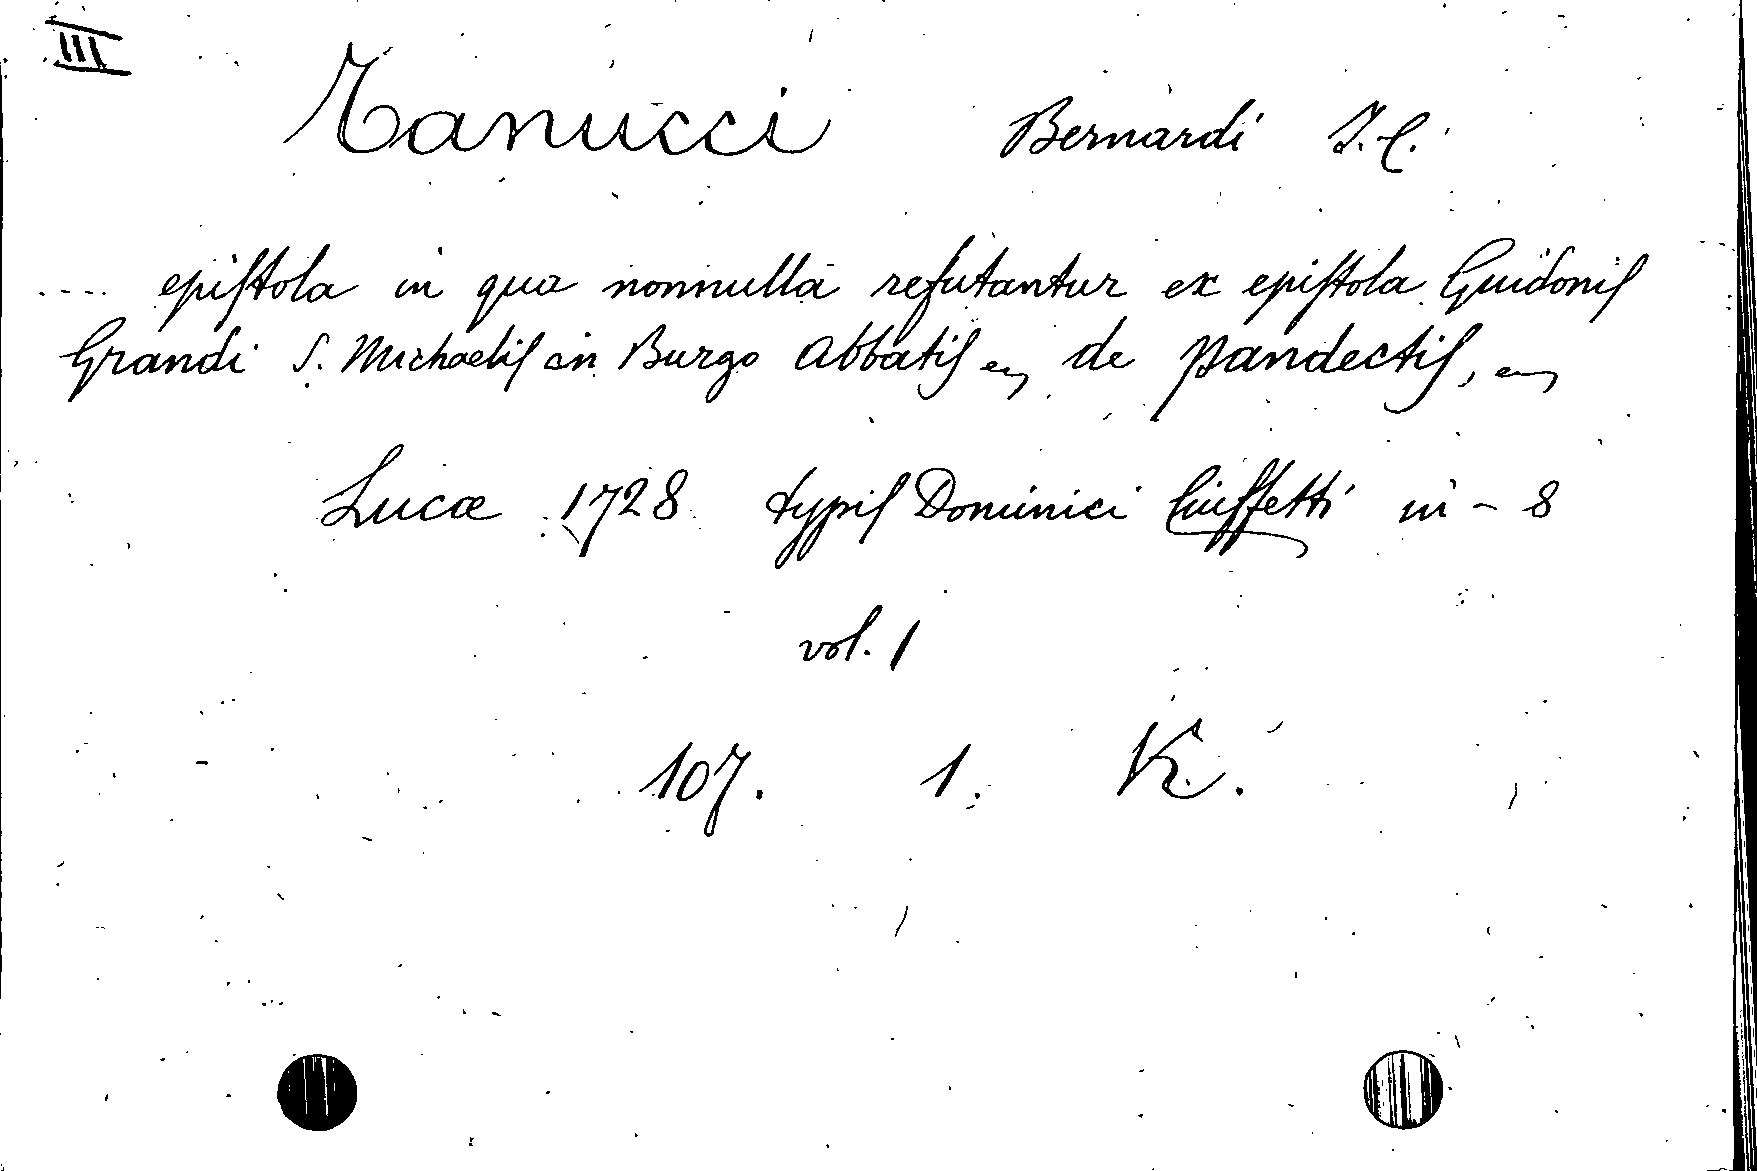 III
Tanucci Bernardi J. C.
.... epistola in qua nonnulla refutantur ex epistola Guidonis
Grandi S. Michaelis in Burgo Abbatis de pandectis,
Lucæ 1728 typis Dominici Ciuffetti in - 8
vol. 1
107. 1. K.